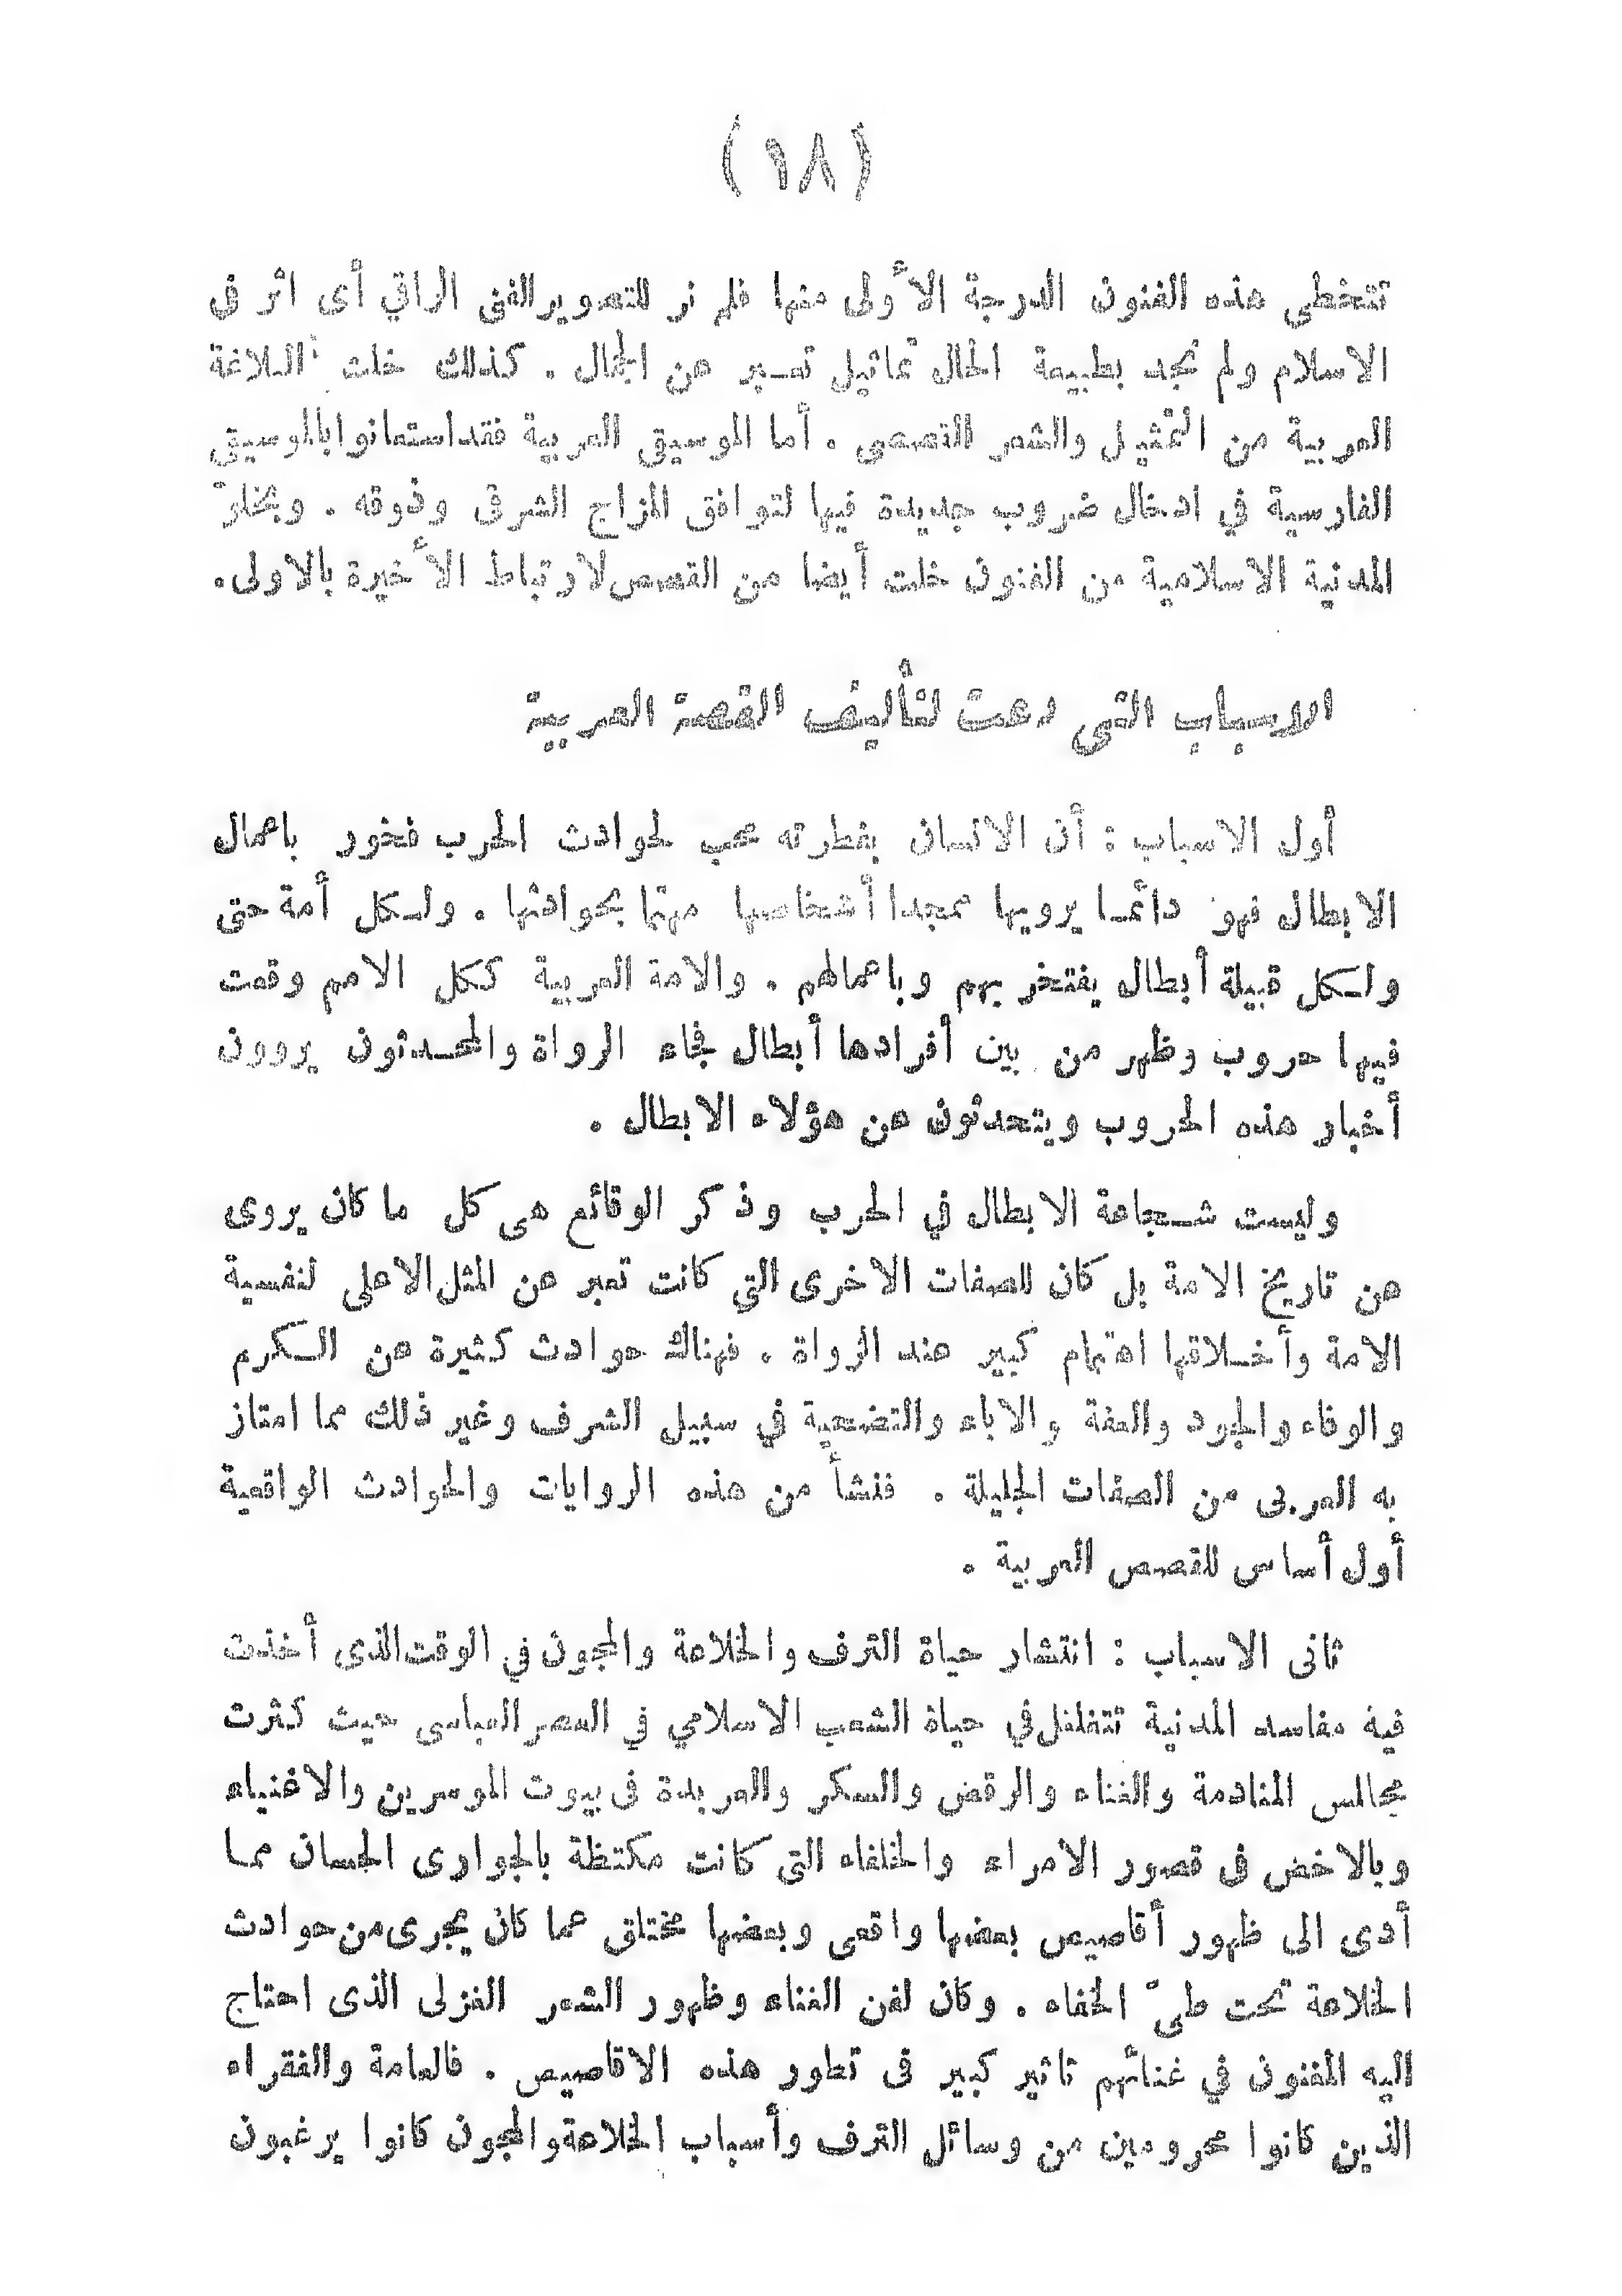 (٩٨)
تتخطى هذه الفنون الدرجة الأولى منها فلم نر للتصوير الفنى الراقي أى اثر فى
الاسلام ولم نجد بطبيعة الحال تماثيل تعبر عن الجمال . كذلك خلت البلاغة
العربية من التمثيل والشعر القصصى . أما الموسيقى العربية فقد استعانوا بالموسيقى
الفارسية في ادخال ضروب جديدة فيها لتوافق المزاج الشرقى وذوقه . وبخلوّ
المدنية الاسلامية من الفنون خلت أيضا من القصص لارتباط الأخيرة بالاولى .
الاسباب التى دعت لتأليف القصة العربية
أول الاسباب : أن الانسان بفطرته محب لحوادث الحرب فخور باعمال
الابطال فهو دائما يرويها ممجدا أشخاصها مهتما بحوادثها . ولكل أمة حتى
ولكل قبيلة أبطال يفتخر بهم وباعمالهم . والامة العربية ككل الامم وقعت
فيها حروب وظهر من بين أفرادها أبطال فجاء الرواة والمحدثون يروون
أخبار هذه الحروب ويتحدثون عن هؤلاء الابطال .
وليست شجاعة الابطال في الحرب وذكر الوقائع هى كل ما كان يروى
عن تاريخ الامة بل كان للصفات الاخرى التي كانت تعبر عن المثل الاعلى لنفسية
الامة وأخلاقها اهتمام كبير عند الرواة . فهناك حوادث كثيرة عن الكرم
والوفاء والجود والعفة والاباء والتضحية في سبيل الشرف وغير ذلك مما امتاز
به العربى من الصفات الجليلة . فنشأ من هذه الروايات والحوادث الواقعية
أول أساس للقصص العربية .
ثانى الاسباب : انتشار حياة الترف والخلاعة والمجون في الوقت الذى أخذت
فيه مفاسد المدنية تتغلغل في حياة الشعب الاسلامي في العصر العباسى حيث كثرت
مجالس المنادمة والغناء والرقص والسكر والعربدة فى بيوت الموسرين والاغنياء
وبالاخص فى قصور الامراء والخلفاء التى كانت مكتظة بالجوارى الحسان مما
أدى الى ظهور أقاصيص بعضها واقعى وبعضها مختلق عما كان يجرى من حوادث
الخلاعة تحت طىّ الخفاء . وكان لفن الغناء وظهور الشعر الغزلى الذى احتاج
اليه المغنون في غنائهم تاثير كبير فى تطور هذه الاقاصيص . فالعامة والفقراء
الذين كانوا محرومين من وسائل الترف وأسباب الخلاعة والمجون كانوا يرغبون